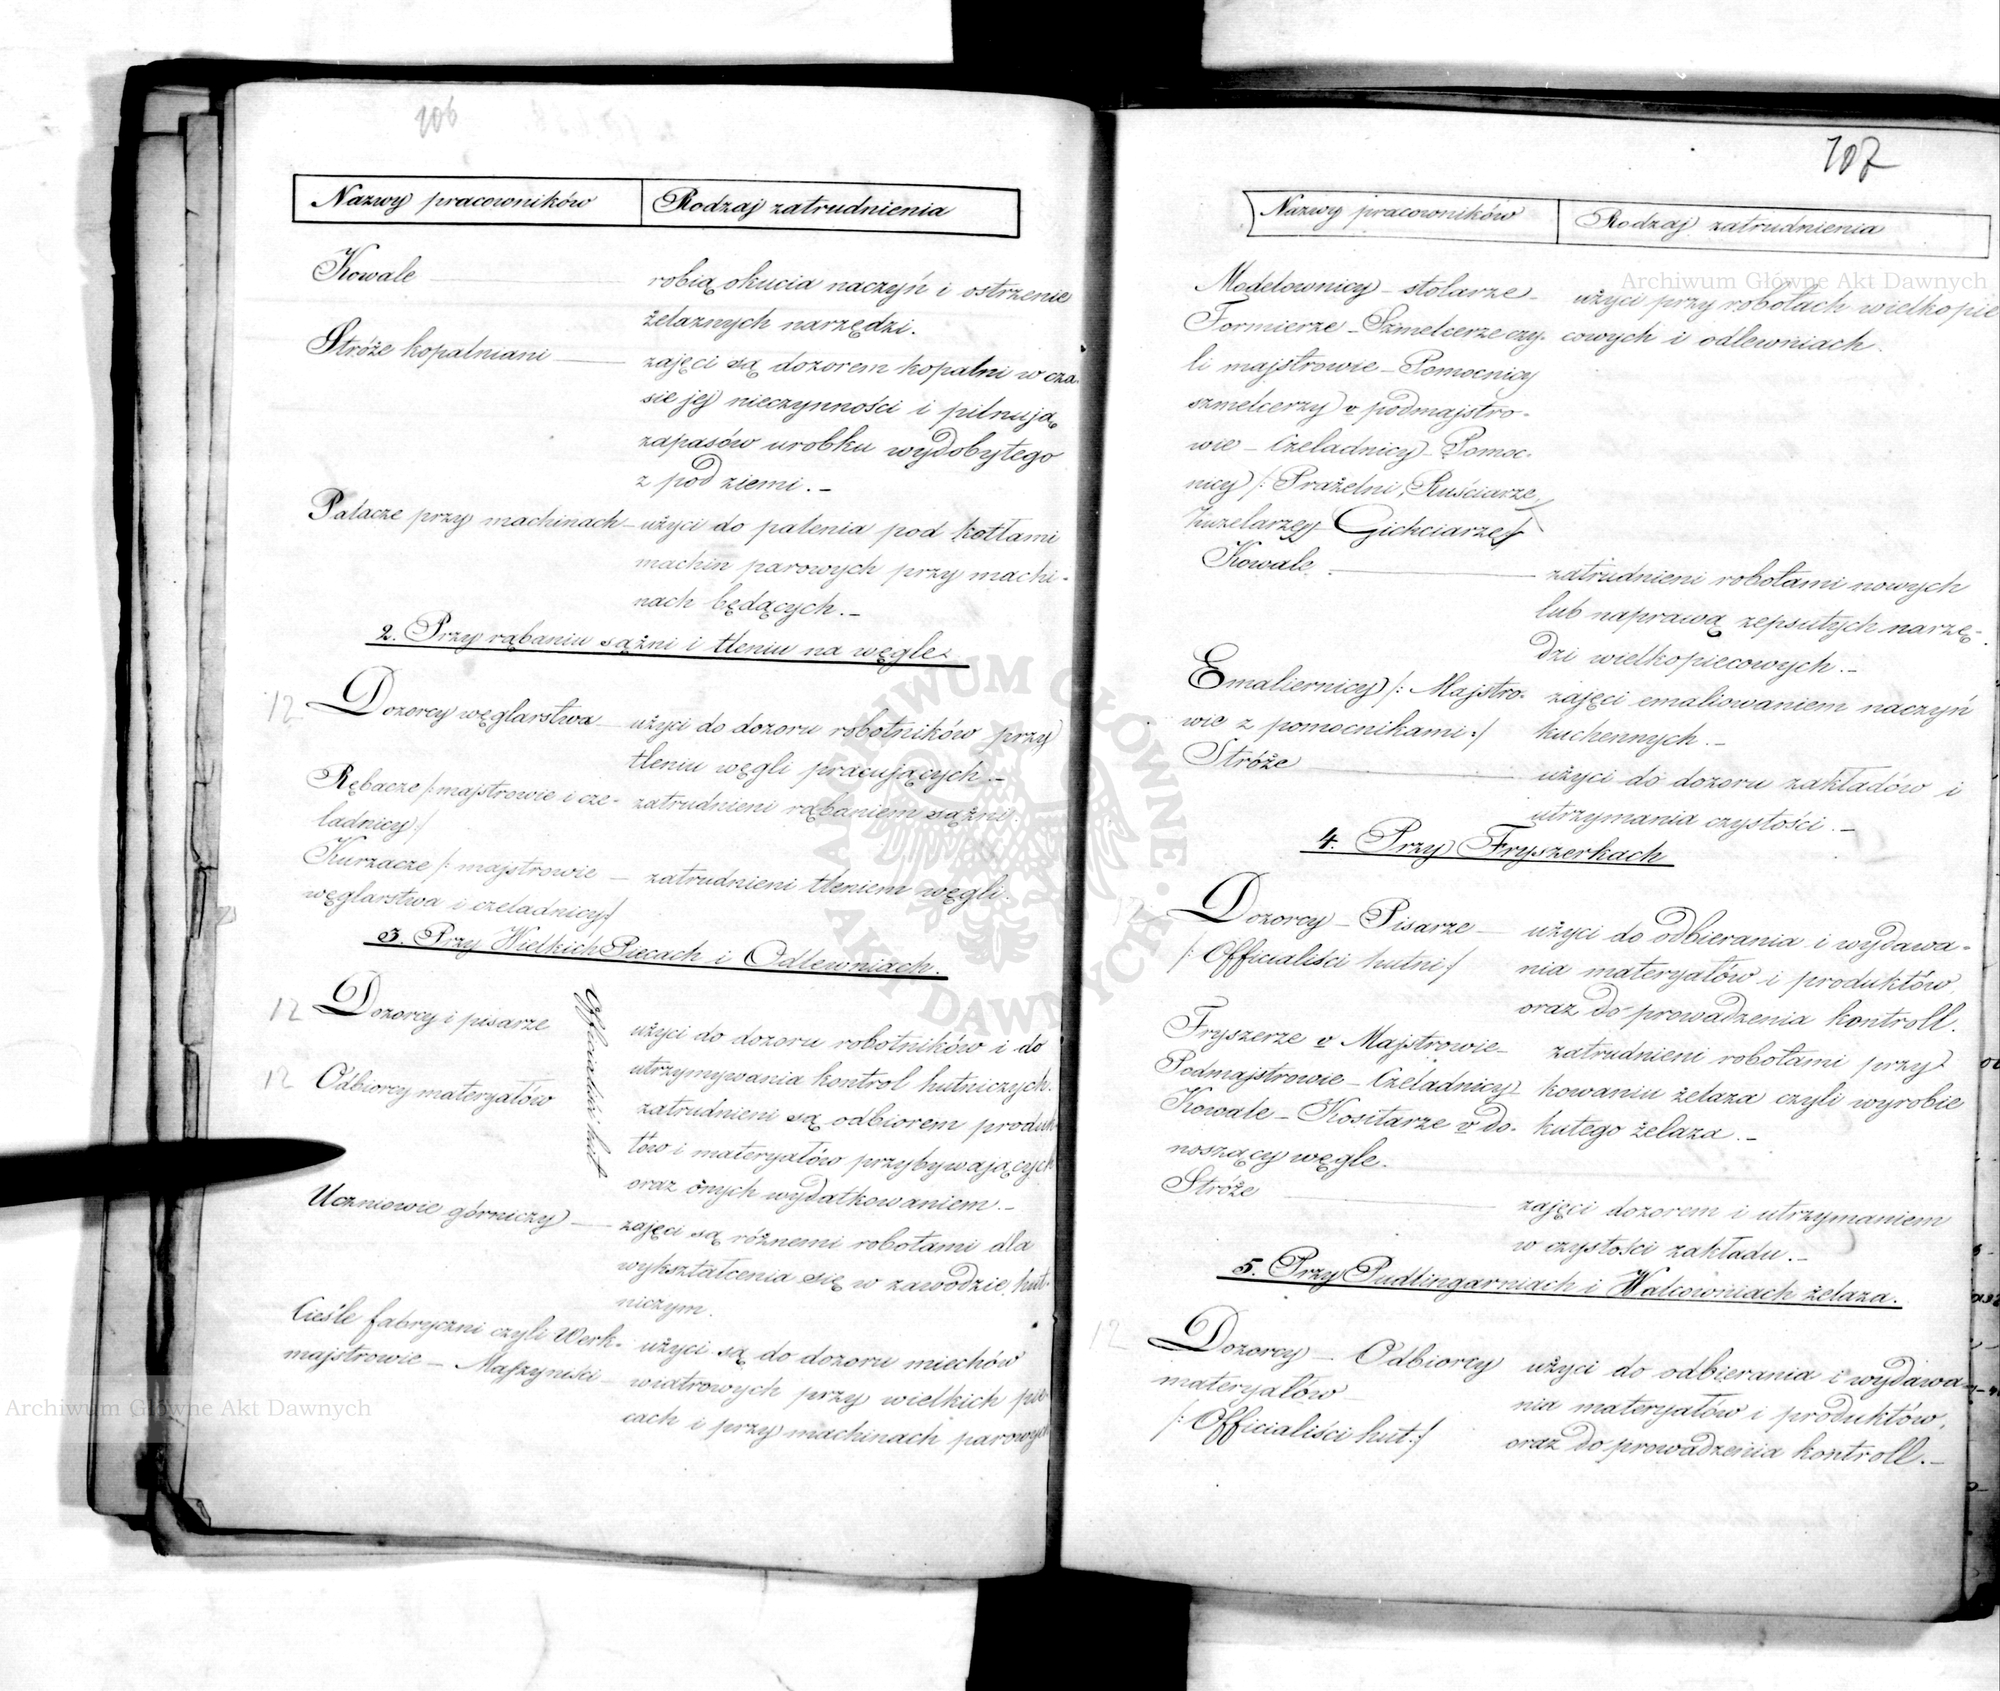 106
Nazwy pracowników Rodzaj zatrudnienia
Kowale robią okucia naczyń i ostrzenie
żelaznych narzędzi.
Stróże kopalniani zajęci są dozorem kopalni w cza-
sie jej nieczynności i pilnują
zapasów urobku wydobytego
z pod ziemi.
Palacze przy machinach użyci do palenia pod kotłami
machin parowych przy machi-
nach będących.
2. Przy rąbaniu sążni i tleniu na węgle.
12 Dozorcy węglarstwa użyci do dozoru robotników przy
tleniu węgli pracujących
Rębacze /: majstrowie i cze- zatrudnieni rąbaniem sążni.
ladnicy :/
Kurzacze /: majstrowie zatrudnieni tleniem węgli.
węglarstwa i czeladnicy :/
3. Przy Wielkich Piecach i Odlewniach.
12 Dozorcy i pisarze użyci do dozoru robotników i do
utrzymywania kontrol hutniczych.
Officialiści hut
12 Odbiorcy materyałów zatrudnieni są odbiorem produk
tów i materyałów przybywających
oraz onych wydatkowaniem.
Uczniowie górniczy zajęci są różnemi robotami dla
wykształcenia się w zawodzie hut-
niczym.
Cieśle fabryczni czyli Werk- użyci są do dozoru miechów
majstrowie – Maszyniści wiatrowych przy wielkich pie
cach i przy machinach parowych
107
Nazwy pracowników Rodzaj zatrudnienia
Modelownicy – stolarze – użyci przy robotach wielkopie
Formierze – Szmelcerze czy- cowych i odlewniach.
li majstrowie – Pomocnicy
szmelcerzy v podmajstro-
wie – Czeladnicy – Pomoc-
nicy /: Prażelni, Ruściarze,
żuzelarze, Gichciarze :/
Kowale zatrudnieni robotami nowych
lub naprawą zepsutych narzę-
dzi wielkopiecowych.
Emaliernicy /: Majstro- zajęci emaliowaniem naczyń
wie z pomocnikami :/ kuchennych.
Stróże użyci do dozoru zakładów i
utrzymania czystości.
4. Przy Fryszerkach
12 Dozorcy – Pisarze użyci do odbierania i wydawa-
/: Officialiści hutni :/ nia materyałów i produktów,
oraz do prowadzenia kontroll.
Fryszerze v Majstrowie – zatrudnieni robotami przy
Podmajstrowie – Czeladnicy kowaniu żelaza czyli wyrobie
Kowale – Kositarze v do- kutego żelaza.
noszący węgle.
Stróże zajęci dozorem i utrzymaniem
w czystości zakładu.
5. Przy Pudlingarniach i Walcowniach żelaza.
12 Dozorcy – Odbiorcy użyci do odbierania i wydawa-
materyałów nia materyałów i produktów,
/: Officialiści hut :/ oraz do prowadzenia kontroll.
Archiwum Główne Akt Dawnych
ARCHIWUM GŁÓWNE AKT DAWNYCH
Archiwum Główne Akt Dawnych